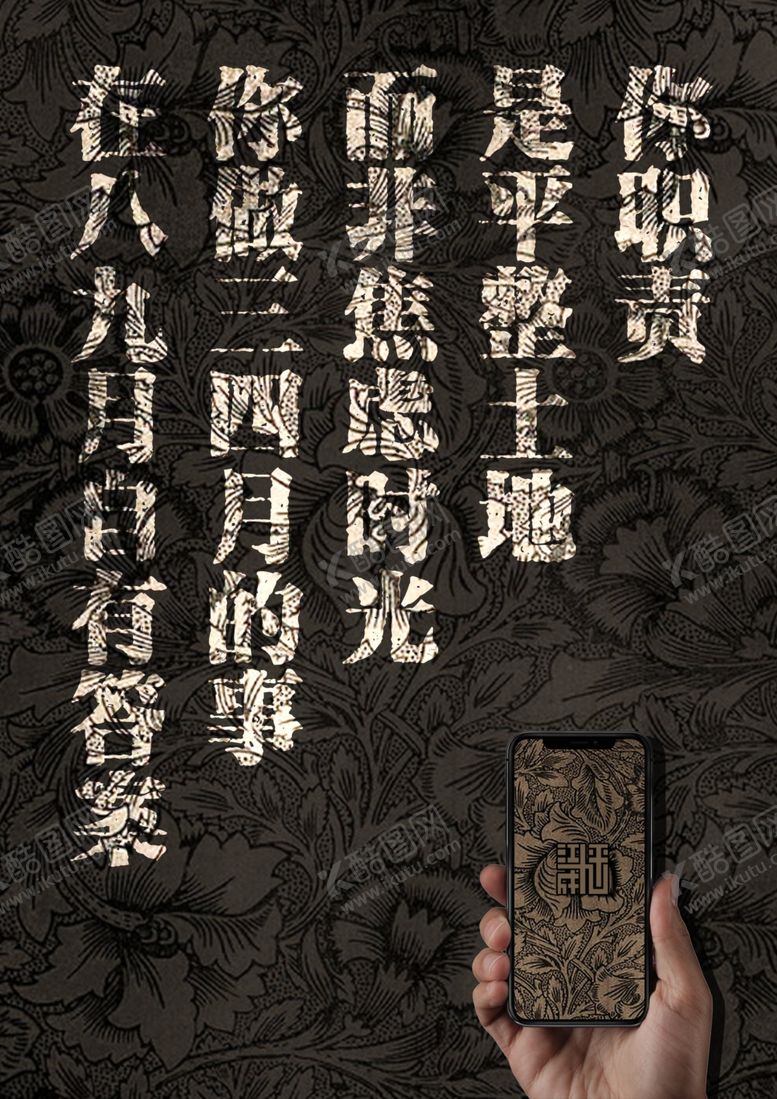 你职责
是平整土地
而非焦虑时光
你做三四月的事
在八九月自有答案
酷图网
www.ikutu.com